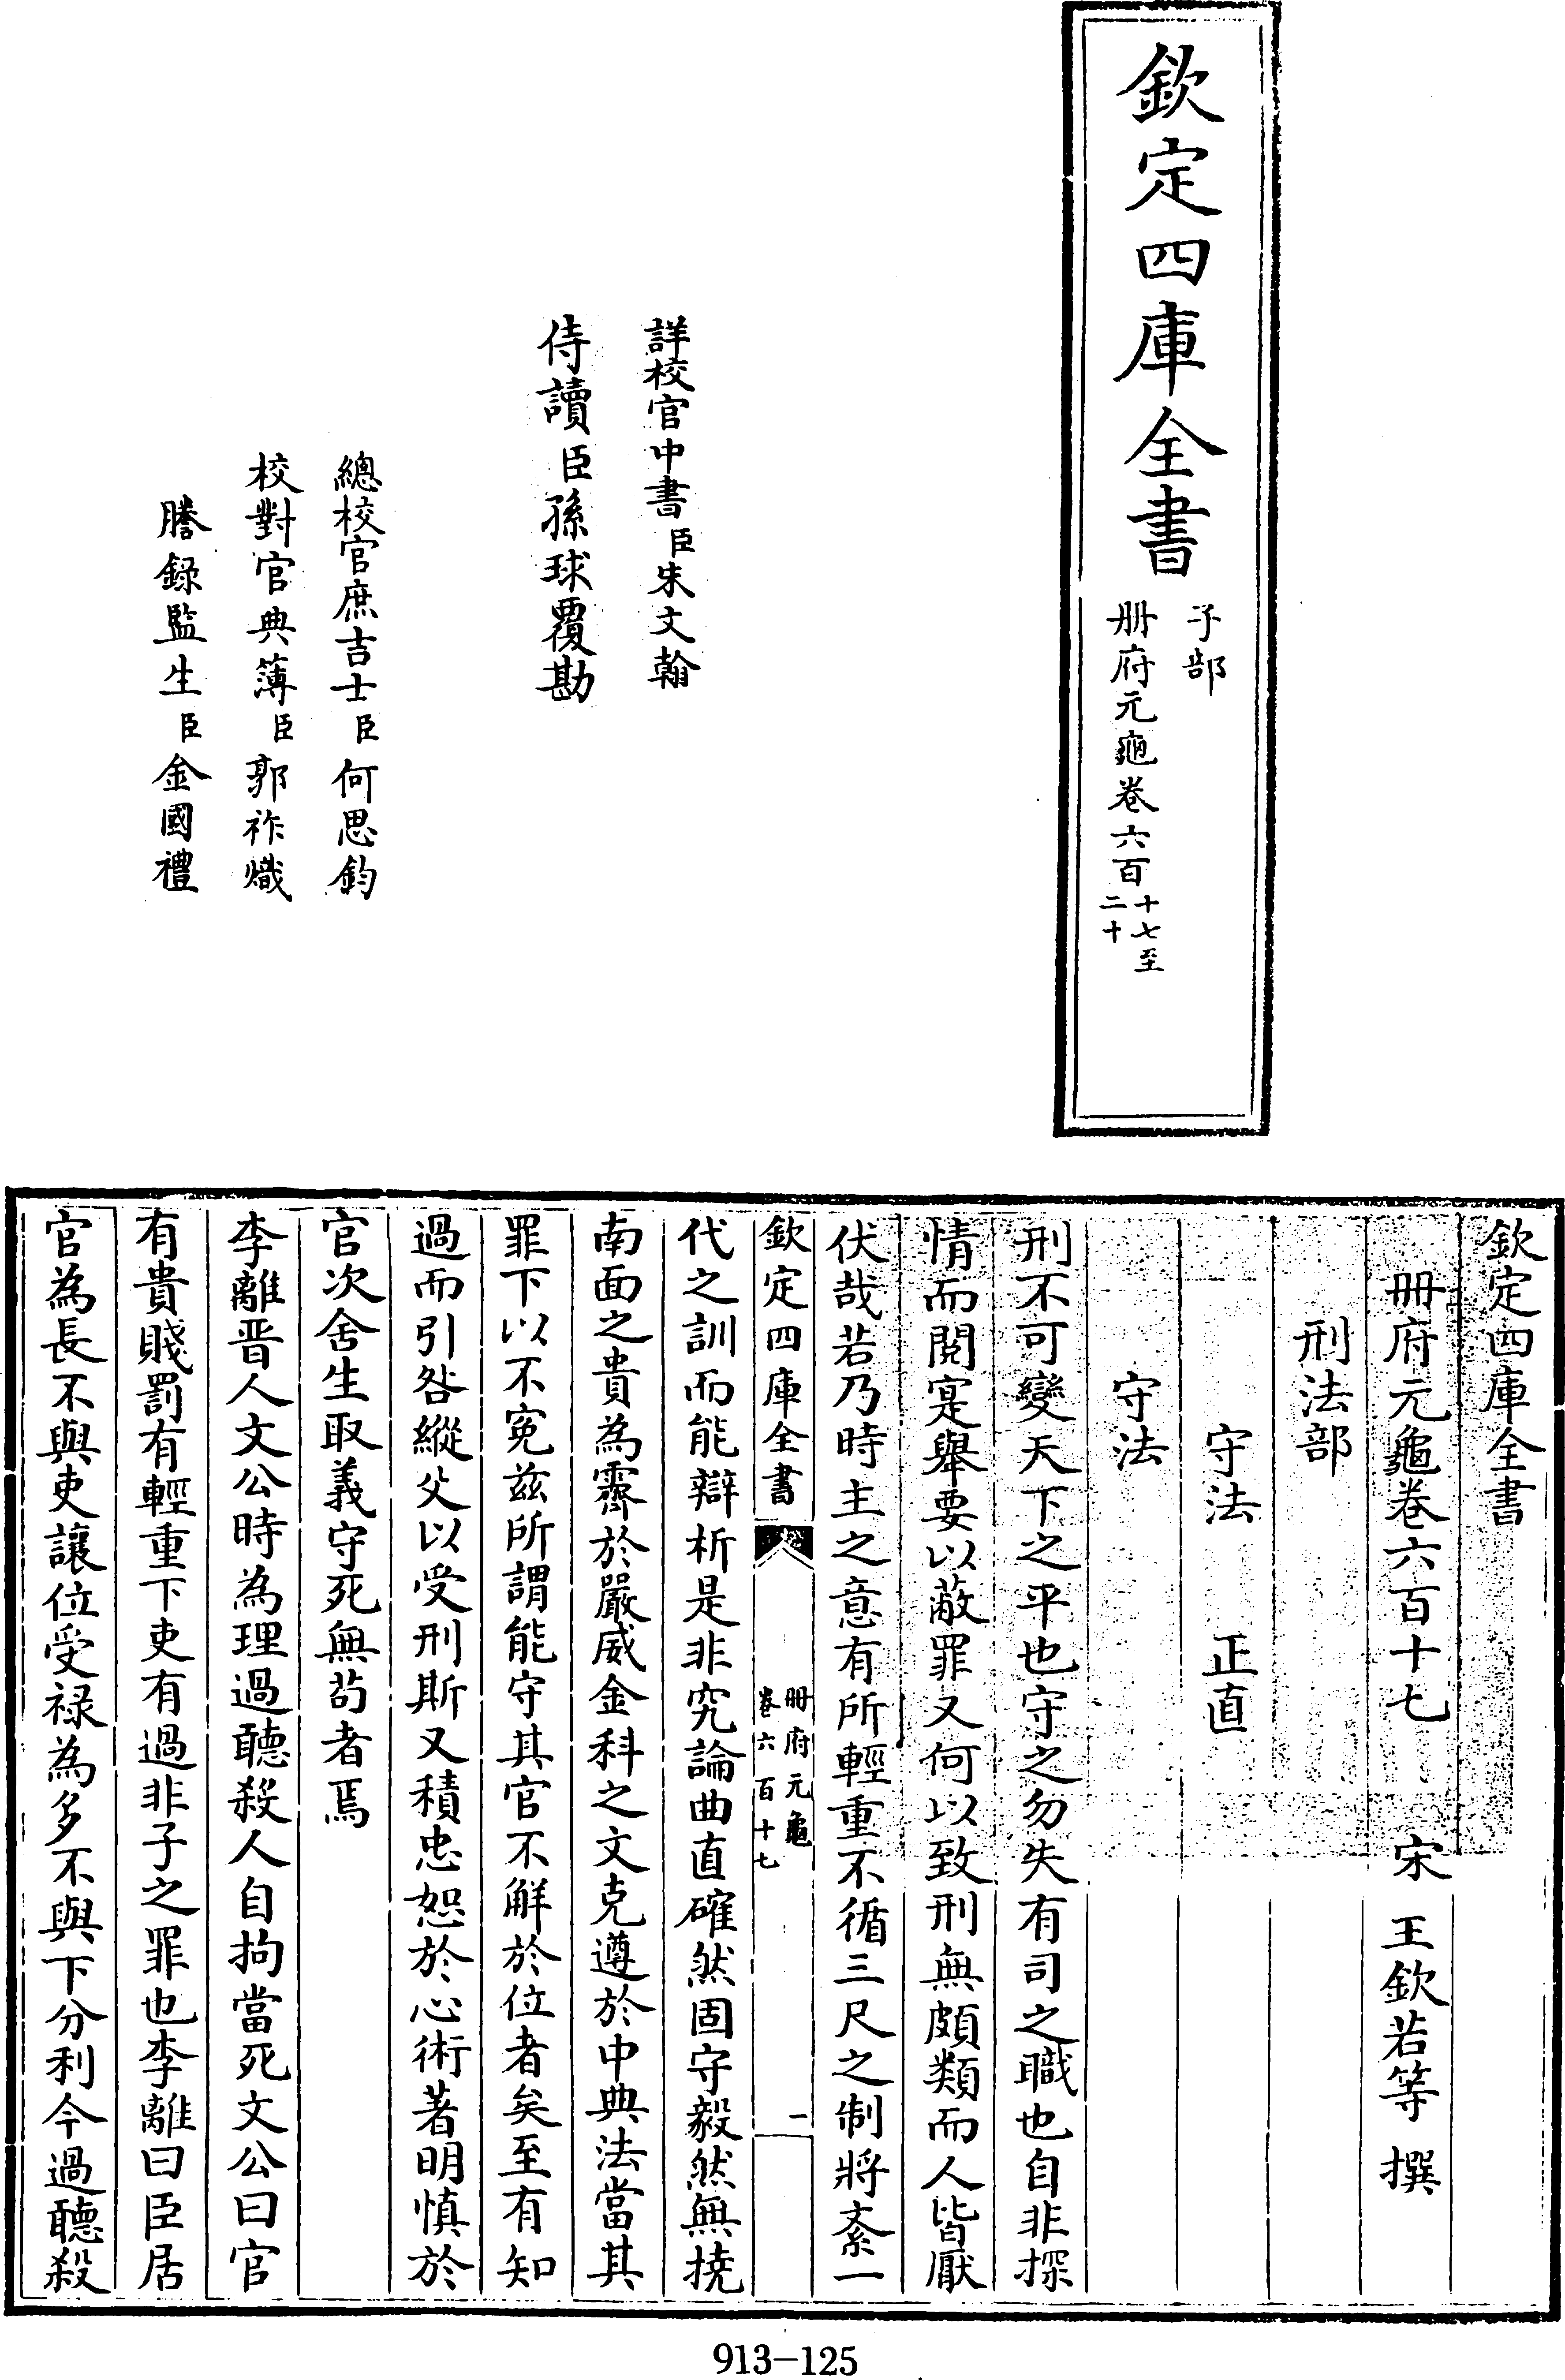 欽定四庫全書
子部
冊府元龜卷六百
十七至
二十
詳校官中書臣朱文翰
侍讀臣孫球覆勘
總校官庶吉士臣何思鈞
校對官典簿臣郭祚熾
謄錄監生臣金國禮
欽定四庫全書
冊府元龜卷六百十七 宋 王欽若等 撰
刑法部
守法 正直
守法
刑不可變天下之平也守之勿失有司之職也自非探
情而閱寔舉要以蔽罪又何以致刑無頗類而人皆厭
伏哉若乃時主之意有所輕重不循三尺之制將紊一
欽定四庫全書
冊府元龜
卷六百十七
一
代之訓而能辯析是非究論曲直確然固守毅然無撓
南面之貴為霽於嚴威金科之文克遵於中典法當其
罪下以不冤茲所謂能守其官不觧於位者矣至有知
過而引咎縱父以受刑斯又積忠恕於心術著明慎於
官次舍生取義守死無茍者焉
李離晋人文公時為理過聽殺人自拘當死文公曰官
有貴賤罰有輕重下吏有過非子之罪也李離曰臣居
官為長不與吏讓位受禄為多不與下分利今過聽殺
913-125